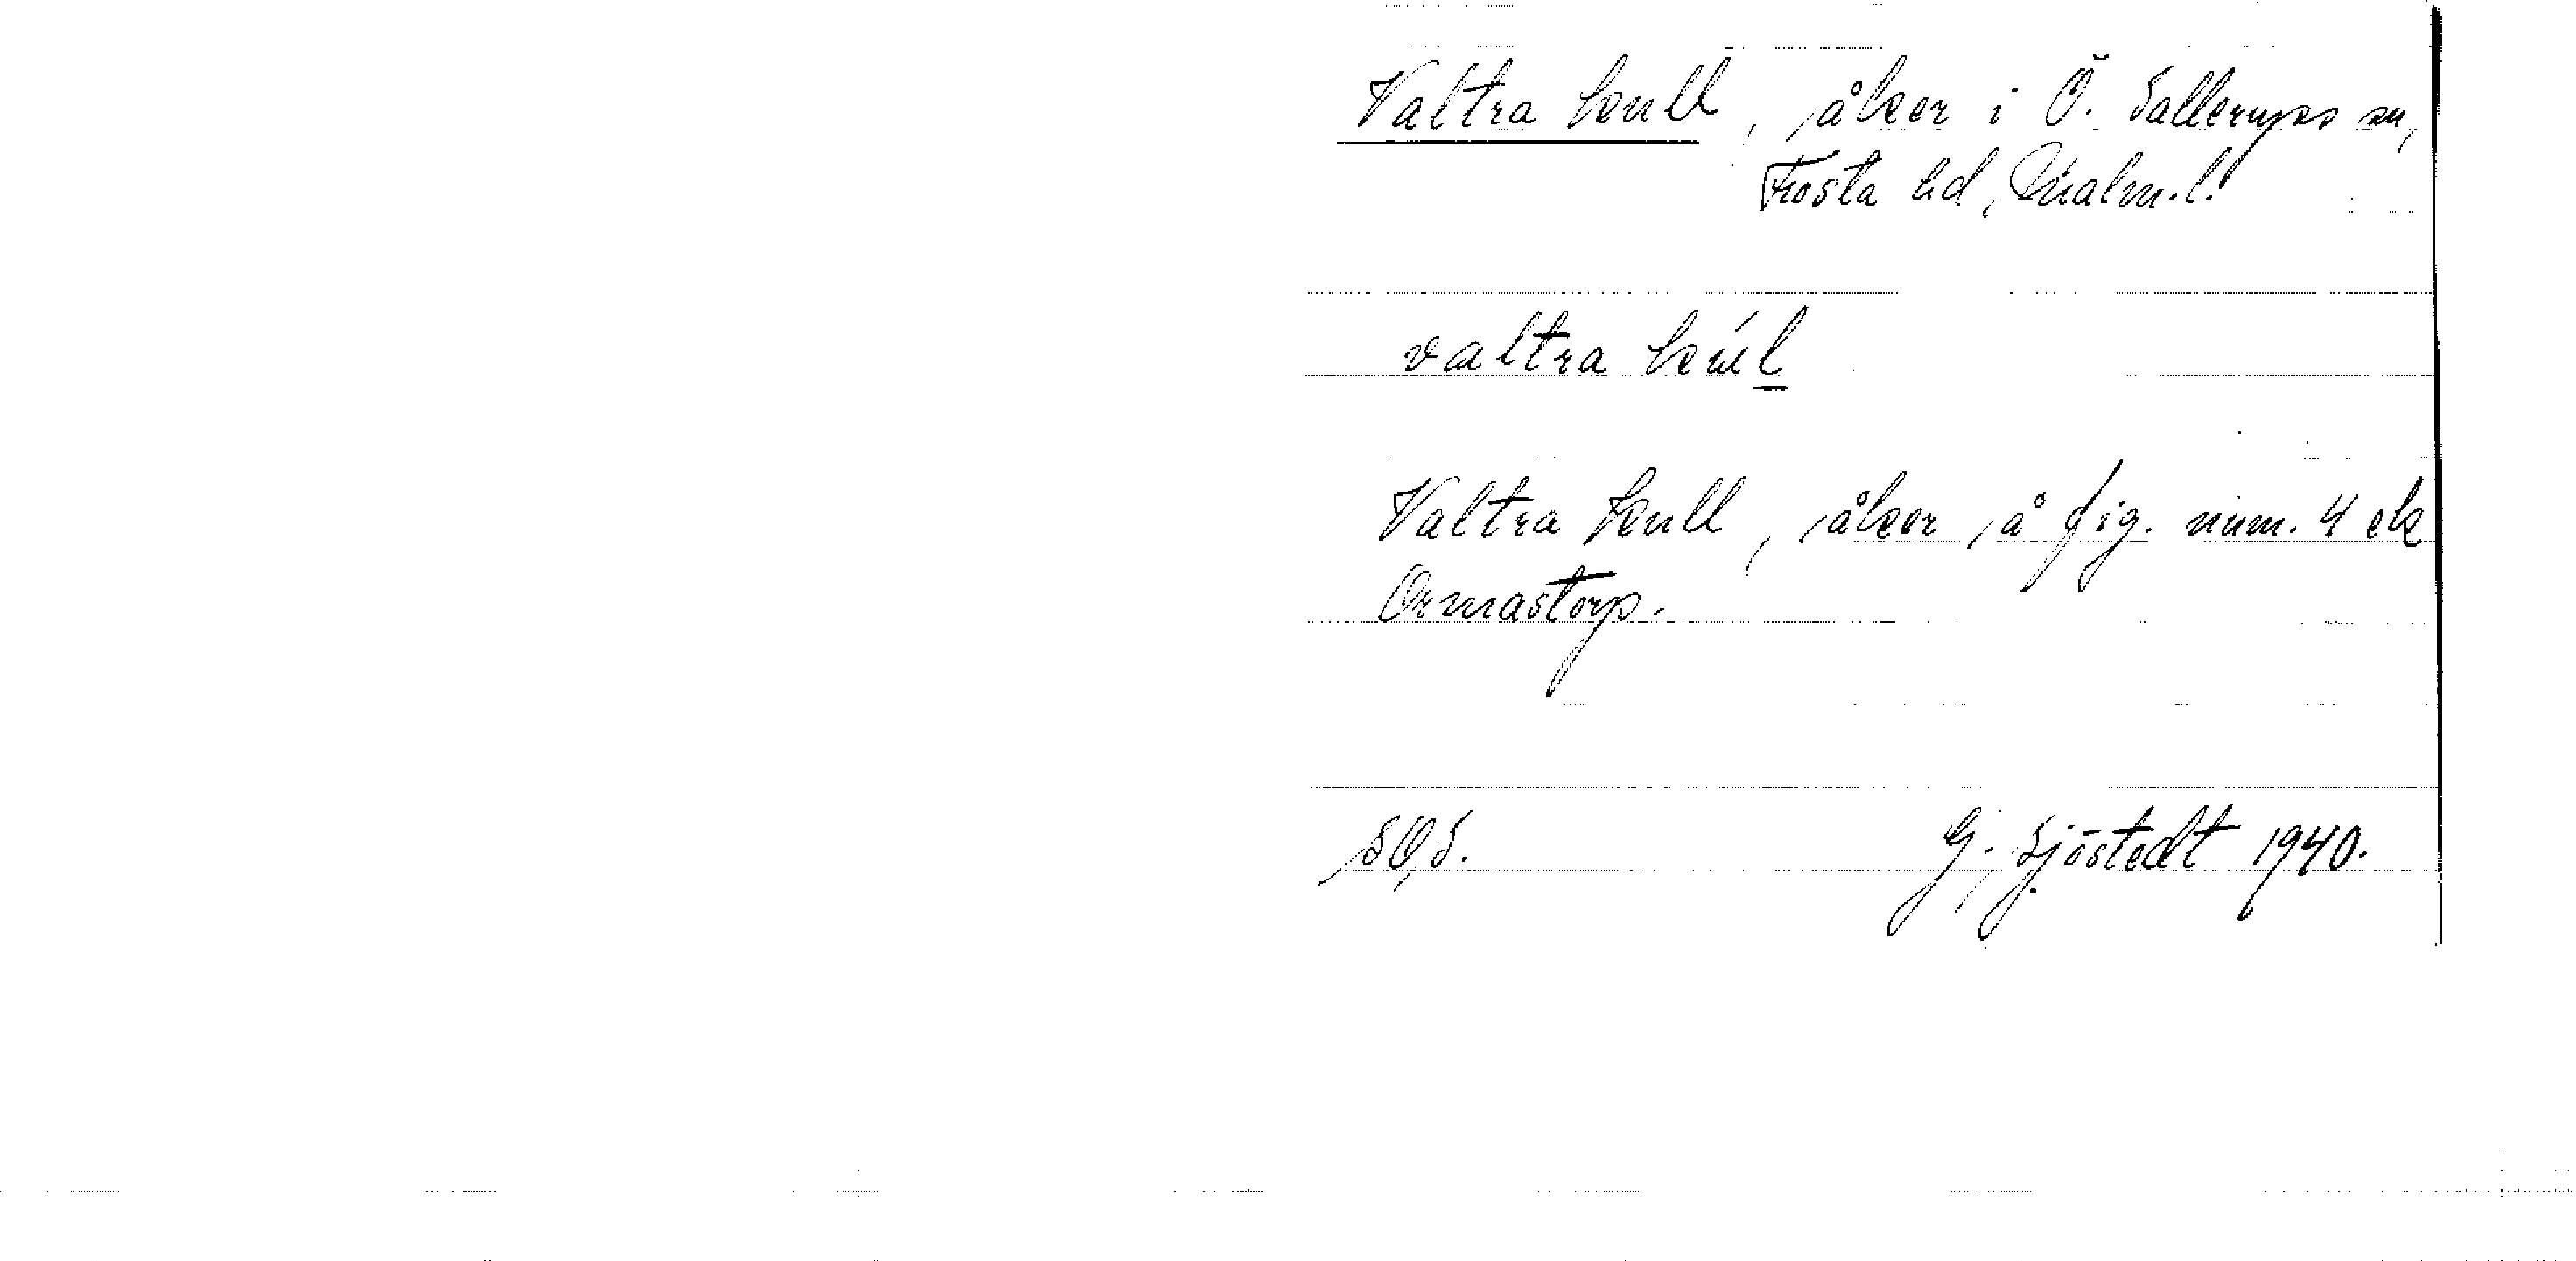 Valtra kull, åker i Ö. Sallerups sn,
Frosta hd, Malm.l.
valtra kúl
Valtra kull, åker å fig. num. 4 ek
Ormastorp.
SOS. G. Sjöstedt 1940.